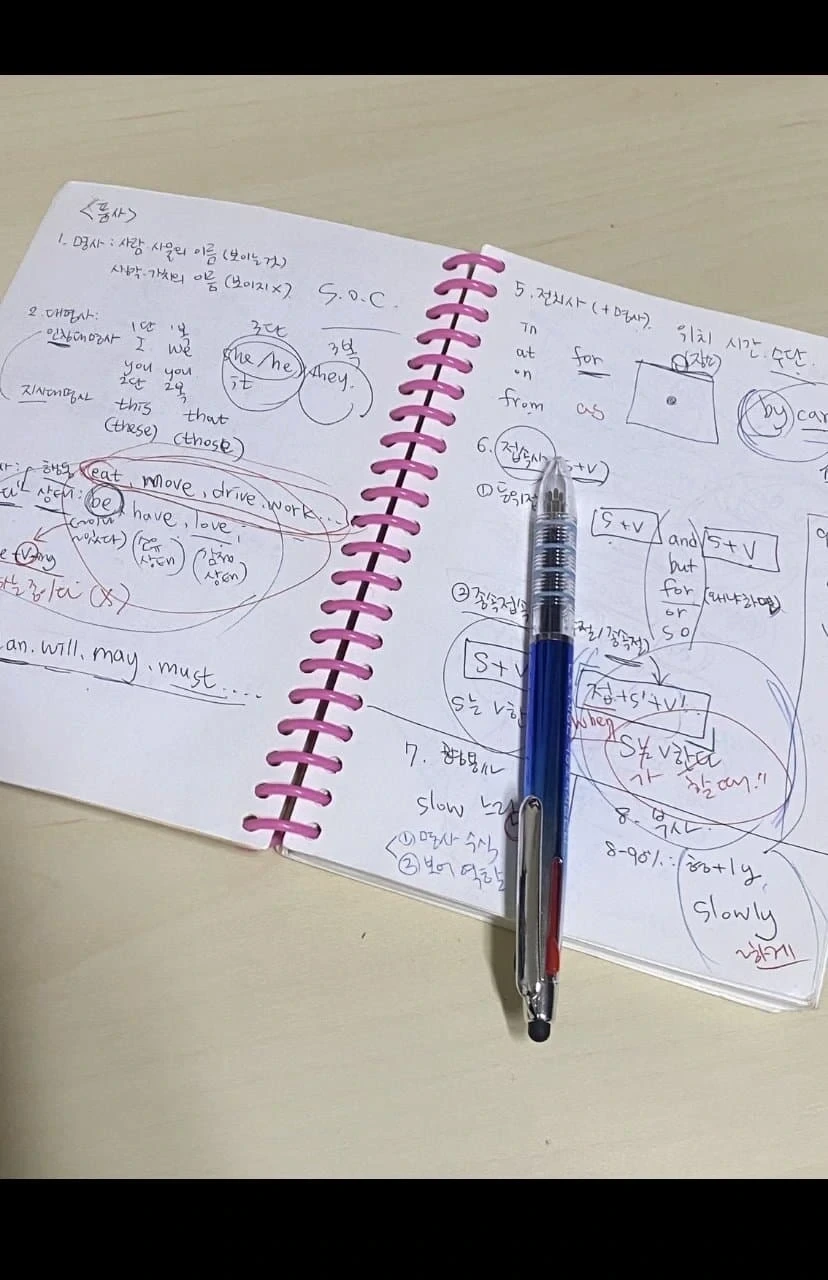 <품사>
1. 명사 : 사람·사물의 이름 (보이는것)
사막·가치의 이름 (보이지X)
S.O.C.
2. 대명사:
인칭대명사
1단 1복
I we
you you
2단 2복
3단
she/he
it
3복
they.
지시대명사
this that
(these) (those)
eat, move, drive, work...
상태: be, have, love,
(소유 상태) (감정 상태)
+Ving
는 중이다 (X)
an. will. may. must....
5. 전치사 (+명사)
위치 시간·수단.
In
at
on
from
for
as
(장소)
by car
6. 접속사 (S+V)
S+V
and
but
for (왜냐하면)
or
so
S+V
S+V
S는 V한
접+S'+V'
when
S는 V한다
가 할 때"
7. 형용사
slow
① 명사 수식
② 보어 역할
8. 부사
8-90%: 형+ly
slowly
~하게